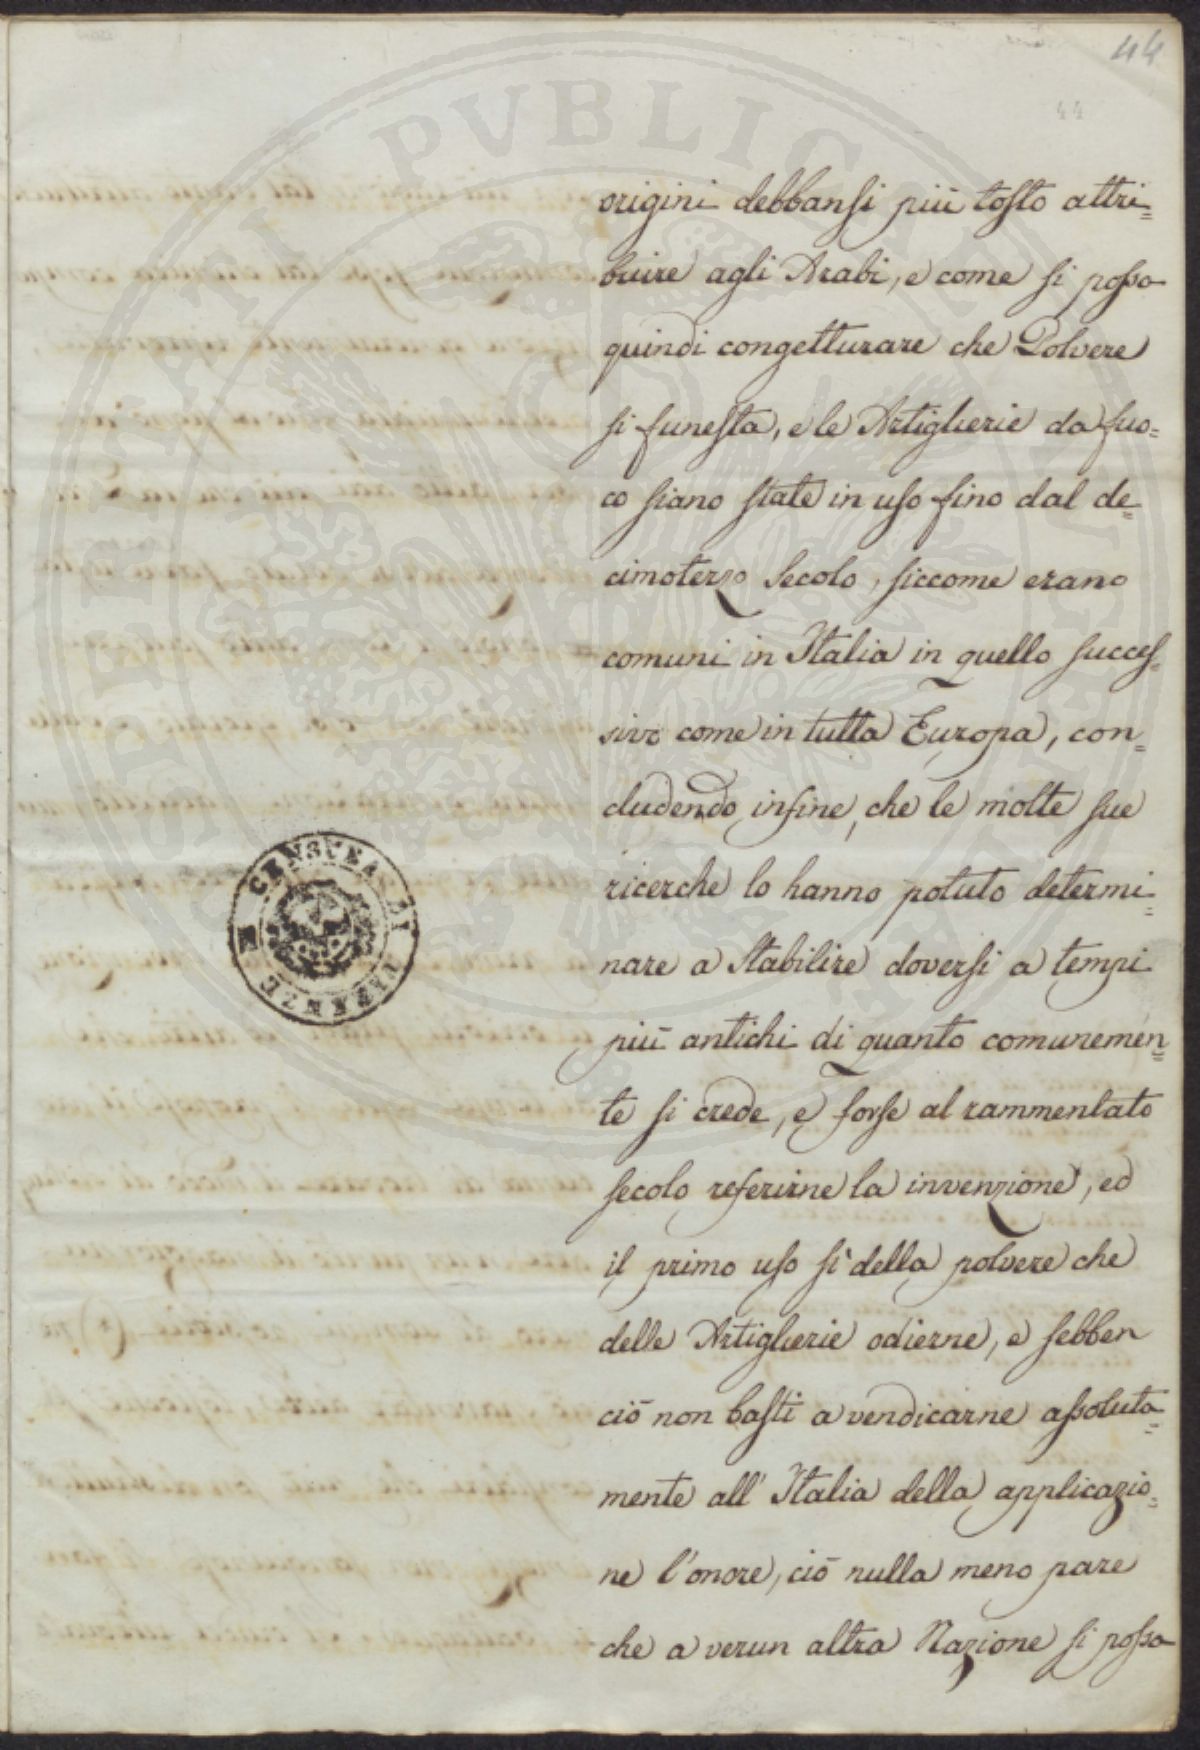 44
44
origini debbansi più tosto attri=
buire agli Arabi, e come si possa
quindi congetturare che Polvere
si funesta, e le Artiglierie da fuo=
co siano state in uso fino dal de=
cimoterzo secolo, siccome erano
comuni in Italia in quello succes=
sivo come in tutta Europa, con=
cludendo infine, che le molte sue
ricerche lo hanno potuto determi=
nare a stabilire doversi a tempi
più antichi di quanto comunemen=
te si crede, e forse al rammentato
secolo referirne la invenzione, ed
il primo uso sì della polvere che
delle Artiglierie odierne, e sebben
ciò non basti a vendicarne assoluta=
mente all' Italia della applicazio=
ne l'onore, ciò nulla meno pare
che a verun altra Nazione si possa